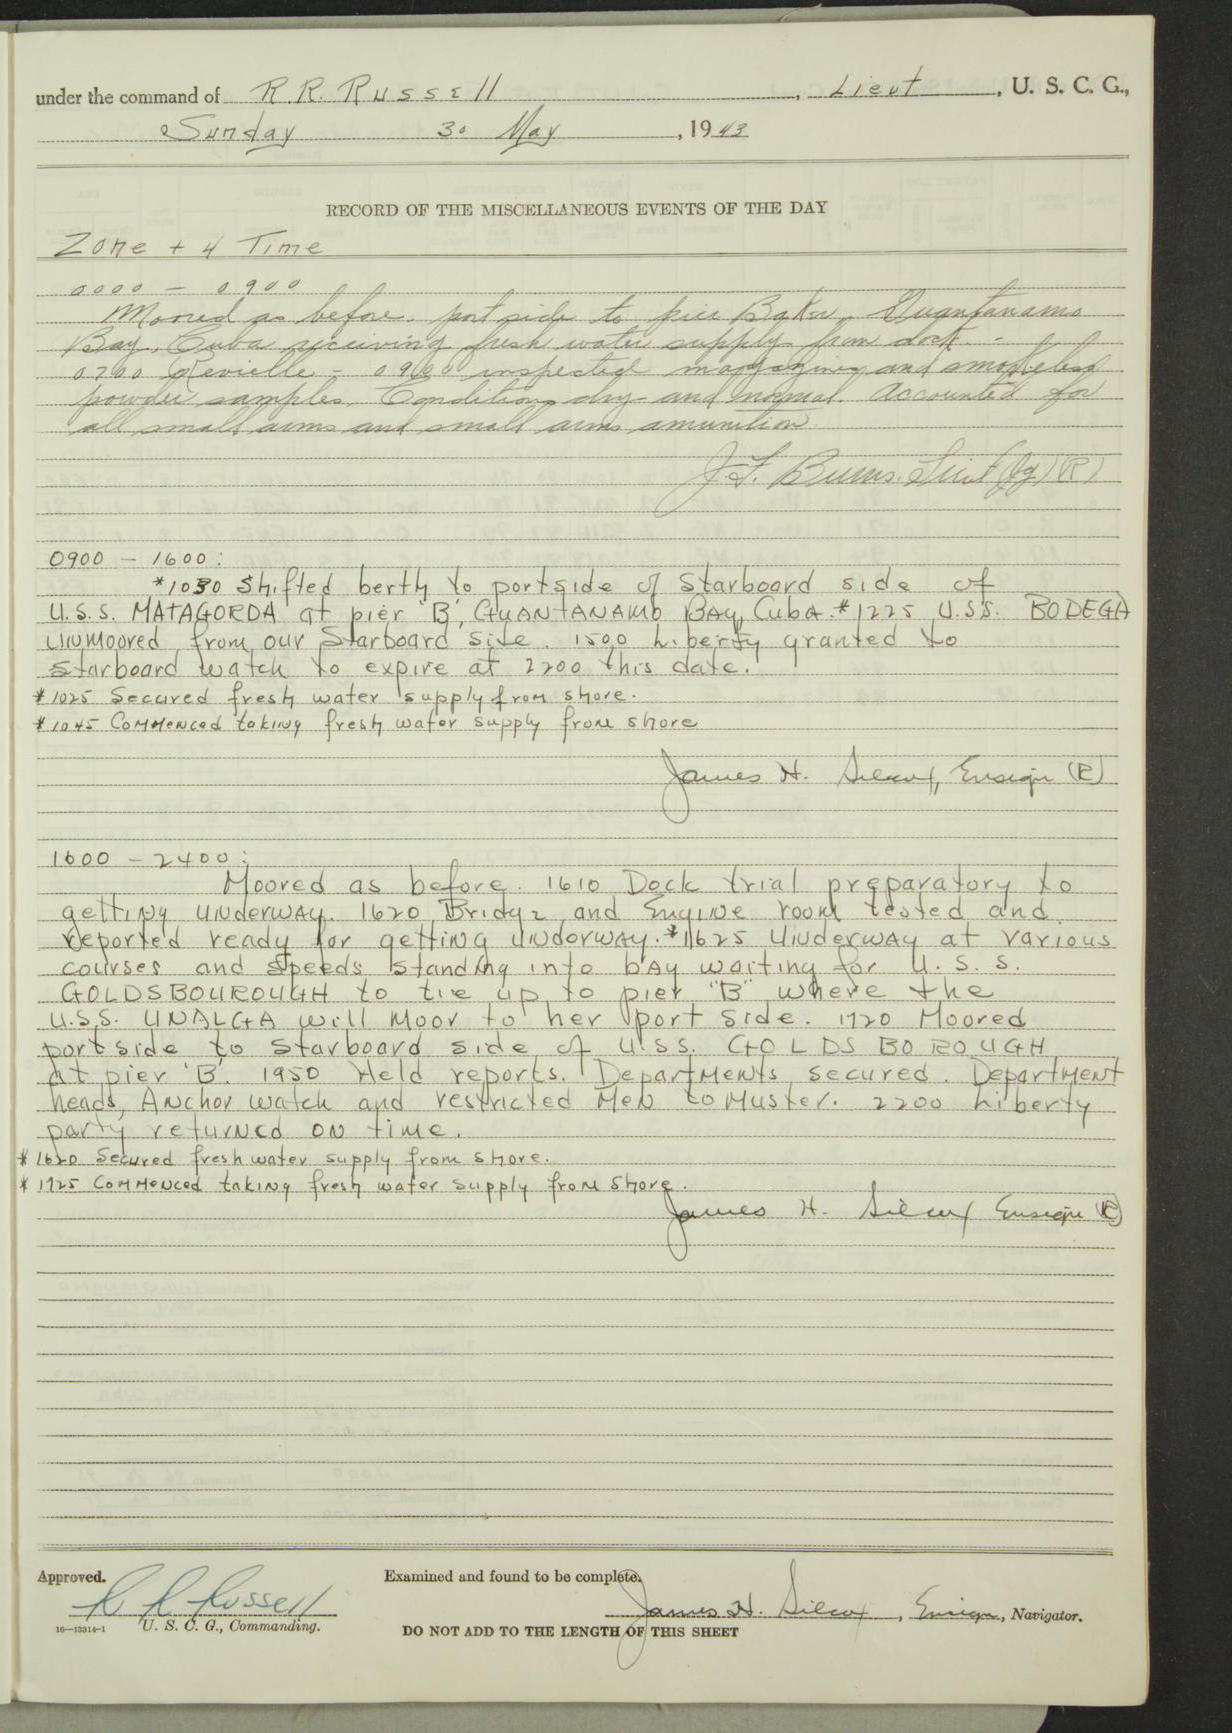 under the command of R. R. Russell, Lieut, U. S. C. G.,
Sunday 30 May, 1943
RECORD OF THE MISCELLANEOUS EVENTS OF THE DAY
Zone + 4 Time
0000 - 0900
Moored as before. port side to pier Baker, Guantanamo
Bay, Cuba receiving fresh water supply from dock. -
0700 Revielle - 0900 inspected magazines and smokeless
powder samples. Conditions dry and normal. Accounted for
all small arms and small arms amunition.
J. F. Burns. Lieut (jg) (R)
0900 - 1600:
*1030 Shifted berth to portside of Starboard side of
U.S.S. MATAGORDA at pier 'B', GUANTANAMO BAY, Cuba. *1225 U.S.S. BODEGA
UNMOORED from our Starboard Side. 1500 Liberty granted to
Starboard watch to expire at 2200 this date.
*1025 Secured fresh water supply from shore.
*1045 Commenced taking fresh water supply from shore
James H. Silcox, Ensign (R)
1600 - 2400:
Moored as before. 1610 Dock trial preparatory to
getting underway. 1620 Bridge and Engine room tested and
reported ready for getting underway. *1625 Underway at various
courses and speeds standing into bay waiting for U. S. S.
GOLDSBOUROUGH to tie up to pier "B" where the
U.S.S. UNALGA will moor to her port side. 1720 Moored
portside to starboard side of U.S.S. GOLDSBOROUGH
at pier 'B'. 1950 Held reports. Departments secured. Department
heads, Anchor watch and restricted men to muster. 2200 Liberty
party returned on time.
* 1620 Secured fresh water supply from shore.
* 1725 Commenced taking fresh water supply from shore.
James H. Silcox Ensign (R)
Approved.
R R Russell
16-13314-1 U. S. C. G., Commanding.
Examined and found to be complete.
James H. Silcox, Ensign, Navigator.
DO NOT ADD TO THE LENGTH OF THIS SHEET